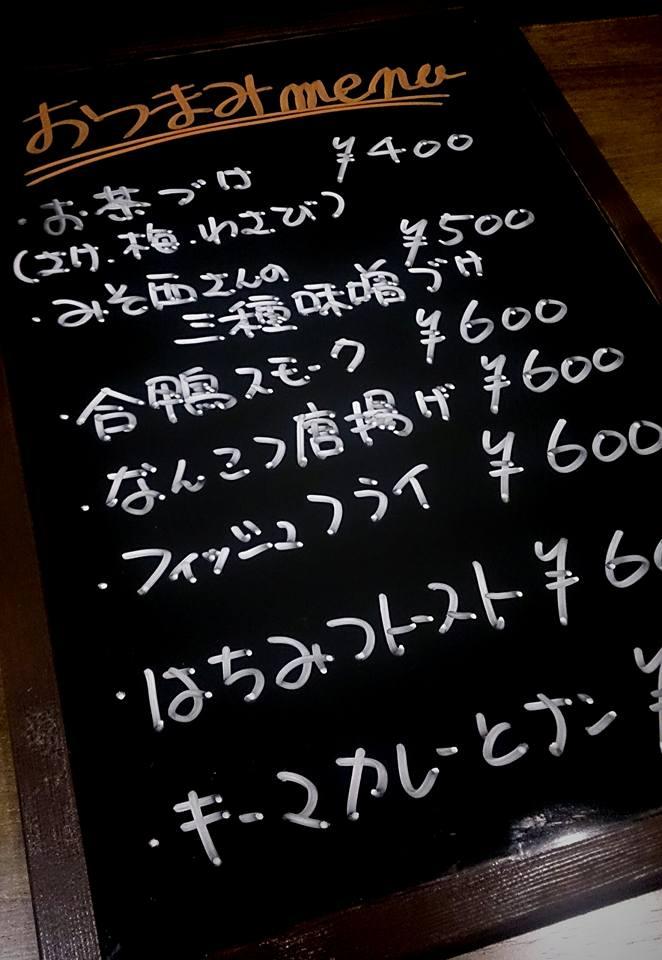 おつまみmenu
・お茶づけ ¥400
(さけ.梅.わさび)
・みそ西さんの ¥500
三種味噌づけ
・合鴨スモーク ¥600
・なんこつ唐揚げ ¥600
・フィッシュフライ ¥600
・はちみつトースト ¥60
・キーマカレーとナン ¥